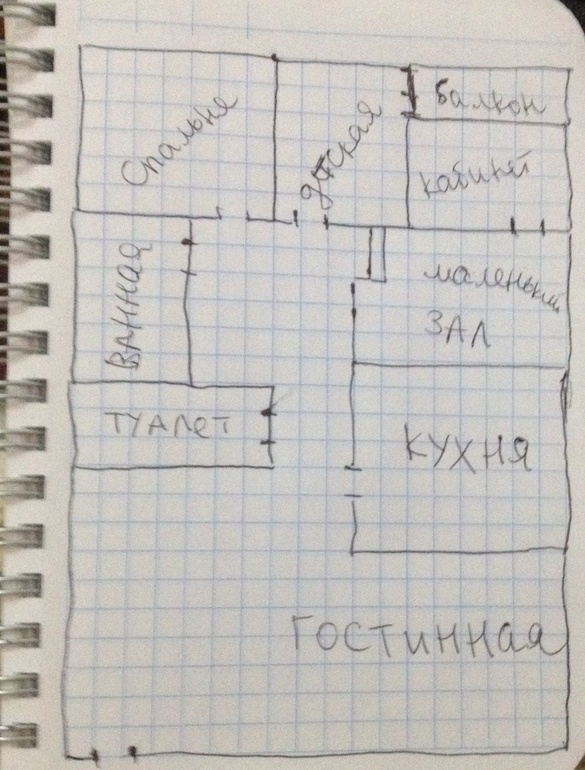 Спальне
детская
балкон
кабинет
ВАННАЯ
маленький
ЗАЛ
ТУАЛЕТ
КУХНЯ
ГОСТИННАЯ